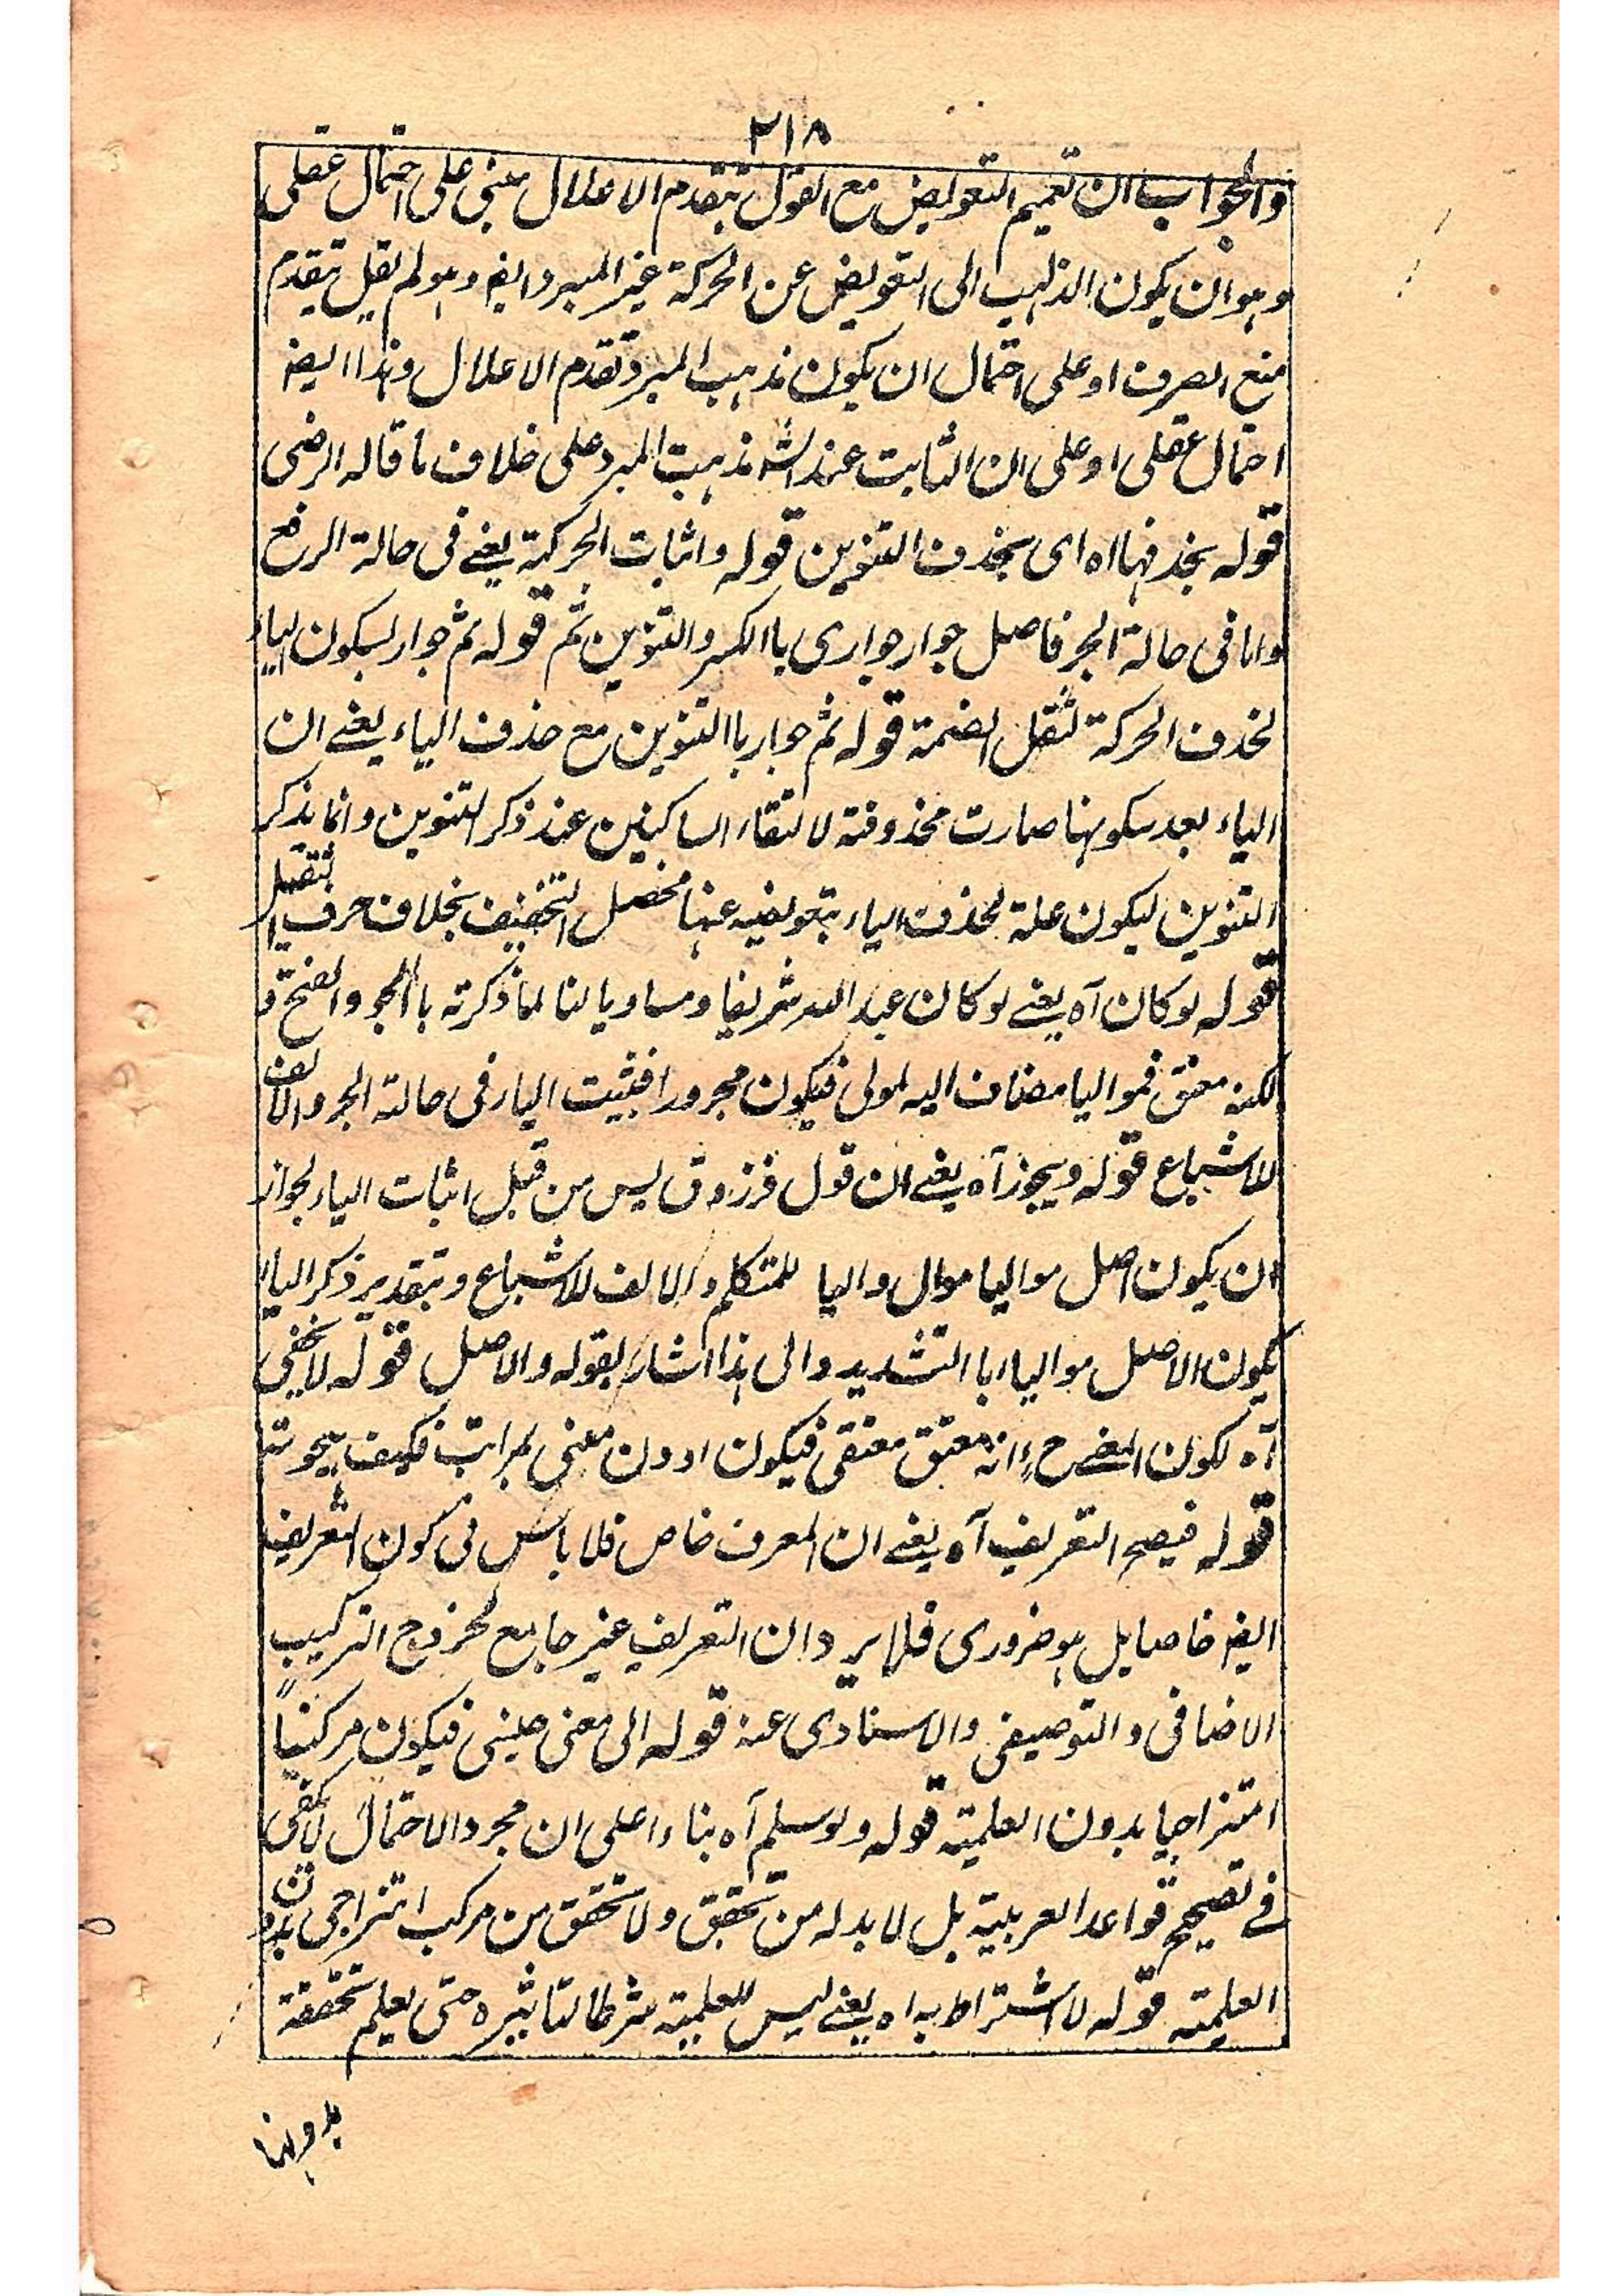 ٢١٨
والجواب ان تعميم التعويض مع القول بتقدم الاعلال مبنى على احتمال عقلى
وهو ان يكون الذاهب الى التعويض عن الحركة غير المبرد ايضا وهو لم يقل بتقدم
منع الصرف او على احتمال ان يكون مذهب المبرد تقدم الاعلال وهذا ايضا
احتمال عقلى او على ان الثابت عند الش مذهب المبرد على خلاف ما قاله الرضى
قوله بحذفها اه اى بحذف التنوين قوله واثبات الحركة يعنى فى حالة الرفع
واما فى حالة الجر فاصل جوار جوارى باالكسر والتنوين ثم قوله ثم جوار بسكون الياء
لحذف الحركة لثقل الضمة قوله ثم جوار باالتنوين مع حذف الياء يعنى ان
الياء بعد سكونها صارت محذوفة لالتقاء الساكنين عند ذكر التنوين وانما يذكر
التنوين ليكون علة لحذف الياء بتعويضه عنها فحصل التخفيف بخلاف حرف الثقيل
قوله لو كان آه يعنى لو كان عبد الله شريفا ومساويا لنا لما ذكرته باالهجو والفتح و
لكنه معتق فمواليا مضاف اليه لمولى فيكون مجرورا فيثبت الياء فى حالة الجر والالف
للاشباع قوله ويجوز آه يعنى ان قول فرزدق ليس من قبل اثبات الياء لجواز
ان يكون اصل مواليا موال واليا للمتكلم والالف للاشباع وبتقدير ذكر الياء
يكون الاصل مواليا باالتشديد والى هذا اشار بقوله والاصل قوله لا يخفى
آه لكون المعنى ح انه معتق معتقى فيكون ادون معنى بمراتب فكيف يهجوننا
قوله فيصح التعريف آه يعنى ان المعرف خاص فلا باس فى كون التعريف
ايضا خاصا بل هو ضرورى فلا يرد ان التعريف غير جامع لخروج التركيب
الاضافى والتوصيفى والاسنادى عنه قوله الى معنى جنسى فيكون مركبًا
امتزاجيا بدون العلمية قوله ولو سلم آه بناء على ان مجرد الاحتمال لا يكفى
فى تصحيح قواعد العربية بل لا بد له من تحقق ولا تحقق من مركب امتزاجى بدون
العلمية قوله لا اشتراط به اه يعنى ليس للعلمية شرطا لتاثيره حتى يعلم تحققه
بدونها